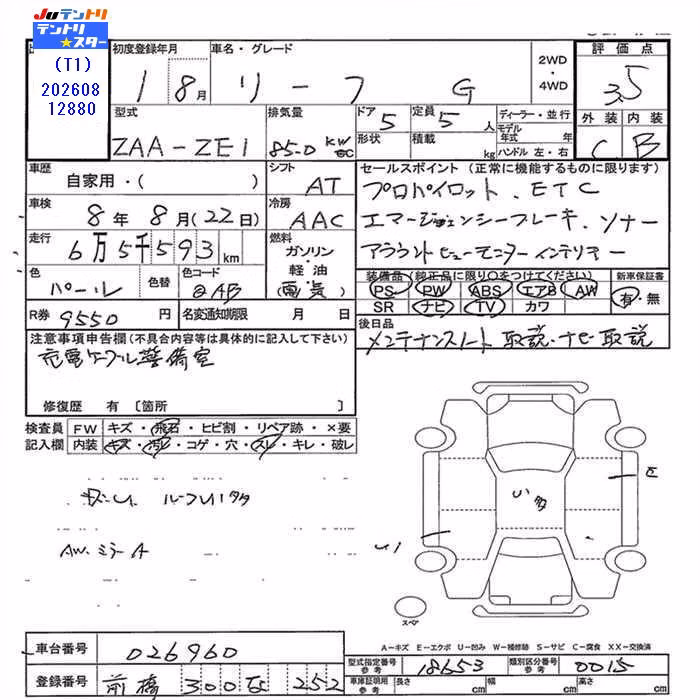 JUテントリ
テントリ★スター
(T1)
202608
12880
初度登録年月
1 8月
車名・グレード
リーフ G
2WD
・
4WD
評価点
3.5
外装 内装
C B
型式
ZAA-ZE1
排気量
85.0 KW
ドア 5
形状
定員 5 人
積載 kg
ディーラー・並行
モデル年式 年
ハンドル 左・右
車歴
自家用・( )
シフト
AT
セールスポイント (正常に機能するものに限ります)
プロパイロット、ETC
エマージェンシーブレーキ、ソナー
アラウンドビューモニター インテリキー
車検
8年8月(22日)
冷房
AAC
走行
6万5千593km
燃料
ガソリン
軽油
(電気)
色
パール
色替
色コード
QAB
装備品(純正品に限り○をつけてください)
PS PW ABS エアB AW
SR ナビ TV カワ
新車保証書
有・無
R券 9550円
名変通知期限 月 日
後日品
メンテナンスノート 取説、ナビ取説
注意事項申告欄(不具合内容等は具体的に記入して下さい)
充電ケーブル 警備室
修復歴 有 〔箇所 〕
検査員記入欄
FW キズ・飛石・ヒビ割・リペア跡・×要
内装 キズ・汚レ・コゲ・穴・スレ・キレ・破レ
ルーフU1多
AW.ミラーA
U1多
E
U1
スペア
A-キズ E-エクボ U-凹み W-補修跡 S-サビ C-腐食 XX-交換済
車台番号 026960
型式指定番号参考 18653
類別区分番号参考 0015
登録番号 前橋 300 252
車庫証明用参考 長さ cm 幅 cm 高さ cm